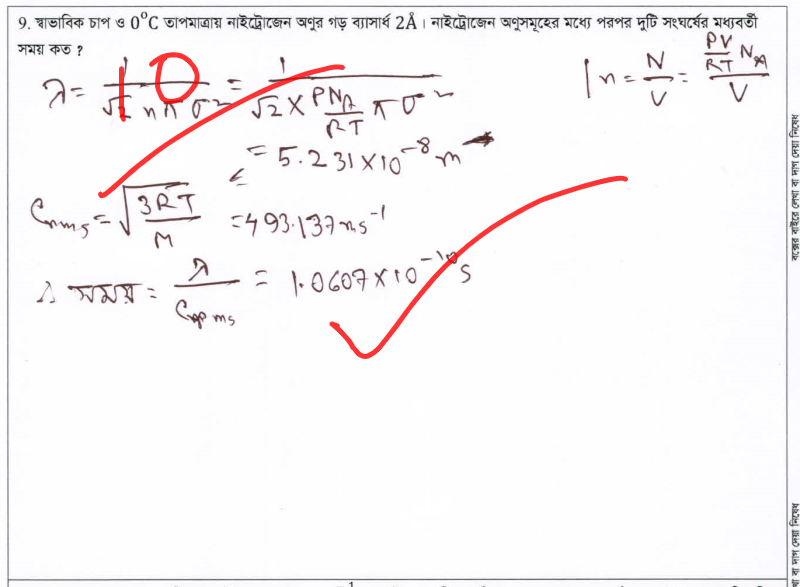 9. স্বাভাবিক চাপ ও 0°C তাপমাত্রায় নাইট্রোজেন অণুর গড় ব্যাসার্ধ 2Å। নাইট্রোজেন অণুসমূহের মধ্যে পরপর দুটি সংঘর্ষের মধ্যবর্তী
সময় কত ?
10
λ = 1/(√2 n π σ²) = 1/(√2 × PN_A/RT π σ²)
| n = N/V = (PV/RT N_A)/V
= 5.231×10⁻⁸ m
C_rms = √(3RT/M) = 493.137 ms⁻¹
∴ সময় = λ/C_rms = 1.0607×10⁻¹⁰ s
বক্সের বাইরে লেখা বা দাগ দেয়া নিষেধ
বা দাগ দেয়া নিষেধ